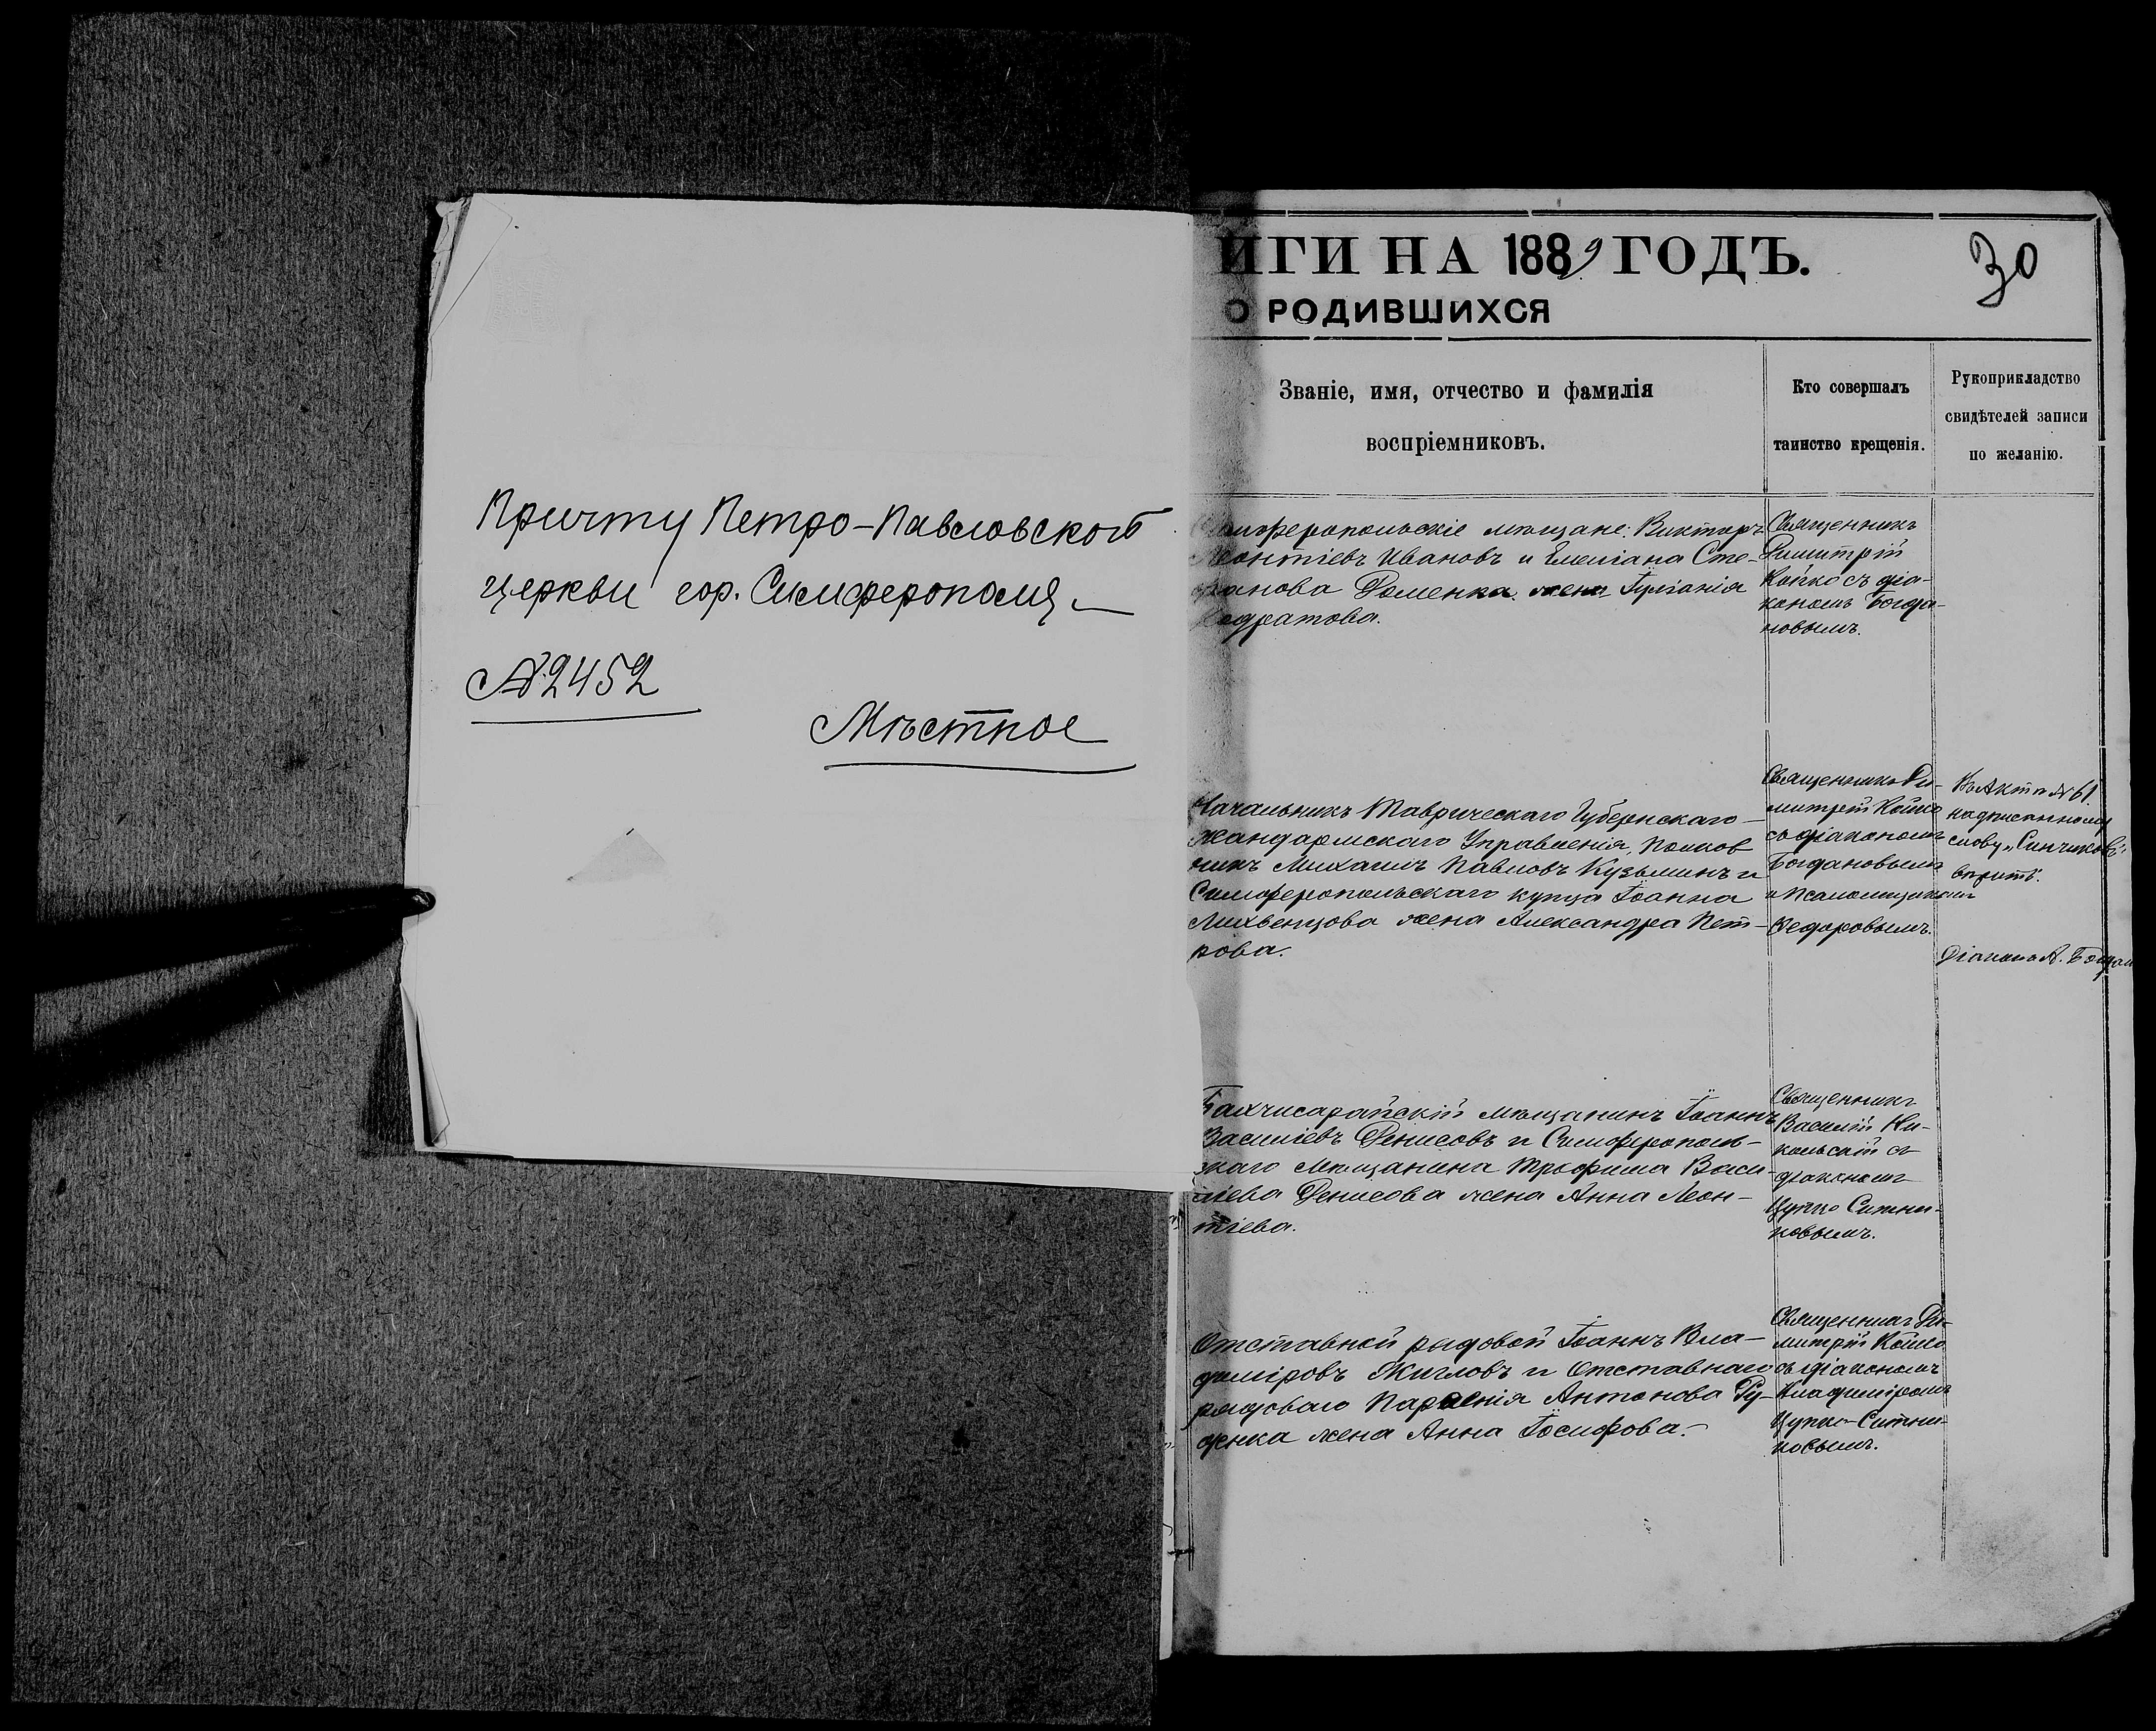 Причту Петро-Павловской
церкви гор. Симферополя
№ 2452
Мѣстное
ИГИ НА 1889 ГОДЪ.
30
О РОДИВШИХСЯ
Званіе, имя, отчество и фамилія
воспріемниковъ.
Кто совершалъ
таинство крещенія.
Рукоприкладство
свидѣтелей записи
по желанію.
Симферопольскіе мѣщане: Викторъ
Леонтіевъ Ивановъ и Емеліана Сте-
фанова Доменка жена Іуліанія
Кодратова.
Священникъ
Димитрій
Койко съ діа-
кономъ Богда-
новымъ.
Начальникъ Таврическаго Губернскаго
Жандармскаго Управленія, Полков
никъ Михаилъ Павловъ Кузьминъ и
Симферопольскаго купца Іоанна
Лихвенцова жена Александра Пет-
рова.
Священникъ Ди-
митрій Койко
съ діакономъ
Богдановымъ
и Псаломщикомъ
Федоровымъ.
Въ Актѣ № 61.
надписанному
слову „Синчиковъ“
вѣрить.
Діаконъ А. Богдан
Бахчисарайскій мѣщанинъ Іоаннъ
Василіевъ Денисовъ и Симферополь-
скаго мѣщанина Трофима Васи-
ліева Денисова жена Анна Леон-
тіева.
Священникъ
Василій Ни-
кольскій съ
діакономъ
Цупко Ситни-
ковымъ.
Отставной рядовой Іоаннъ Вла-
диміровъ Жигловъ и Отставнаго
рядоваго Парѳенія Антонова Ру-
денка жена Анна Іосифова.
Священникъ Ди-
митрій Койко
съ діакономъ
Владиміромъ
Цупко-Ситни-
ковымъ.